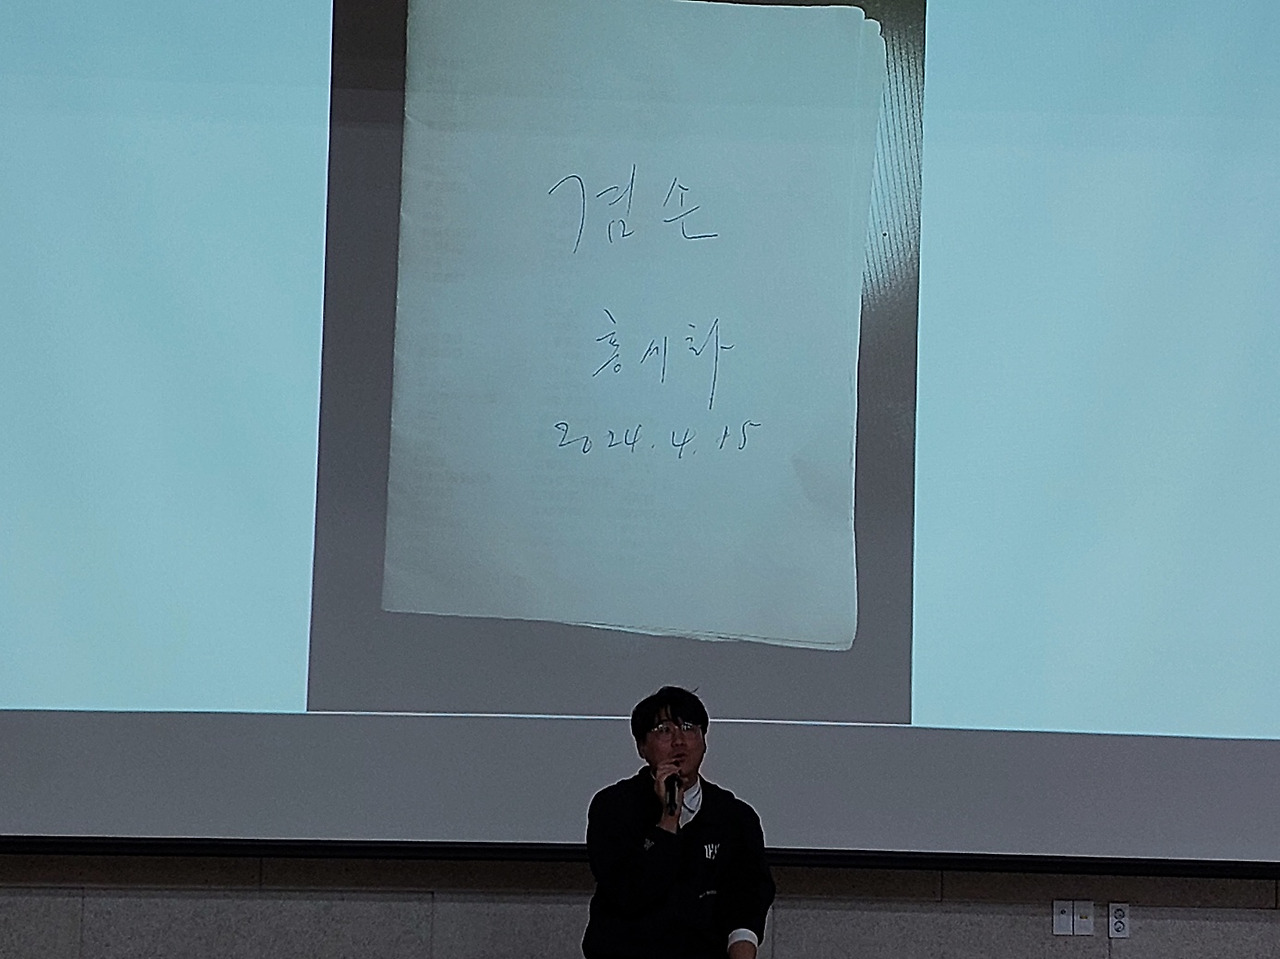 겸손
홍세화
2024. 4. 15